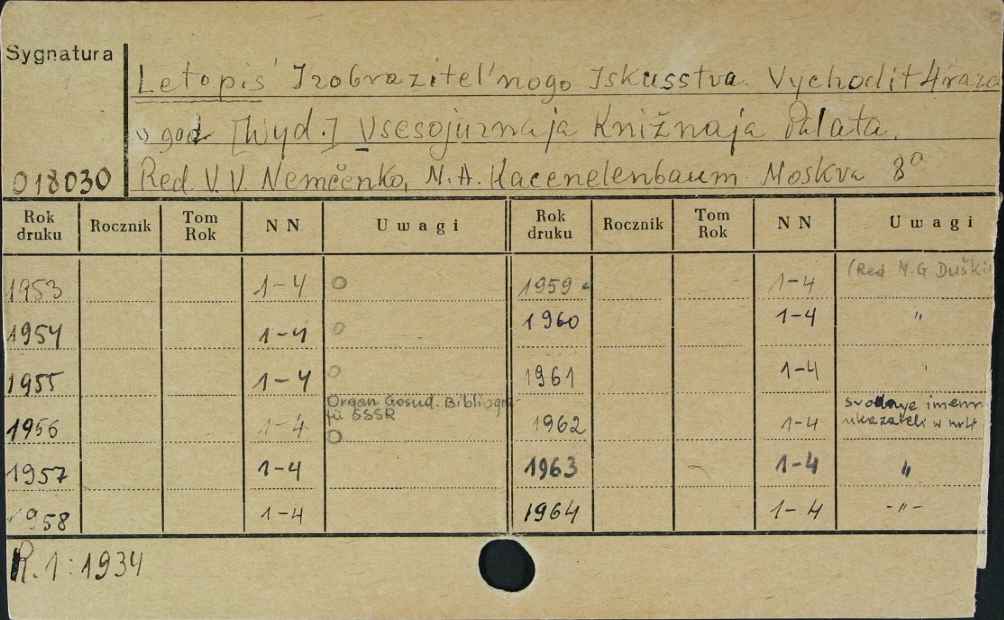 Sygnatura
Letopis' Izobrazitel'nogo Iskusstva. Vychodit 4 raza
v god [Wyd.] Vsesojuznaja Knižnaja Palata.
018030 Red. V.V. Nemčenko, N.A. Kacenelenbaum. Moskva 8°
Rok druku Rocznik Tom Rok NN Uwagi Rok druku Rocznik Tom Rok NN Uwagi
1953 1-4 O 1959 1-4 (Red M.G Duški
1954 1-4 O 1960 1-4 "
1955 1-4 O 1961 1-4 "
Organ Gosud. Bibliogra-
fii SSSR
1956 1-4 O 1962 1-4 svodnye imenn
ukazateli w nr 4
1957 1-4 1963 1-4 "
1958 1-4 1964 1-4 -"-
R. 1: 1934